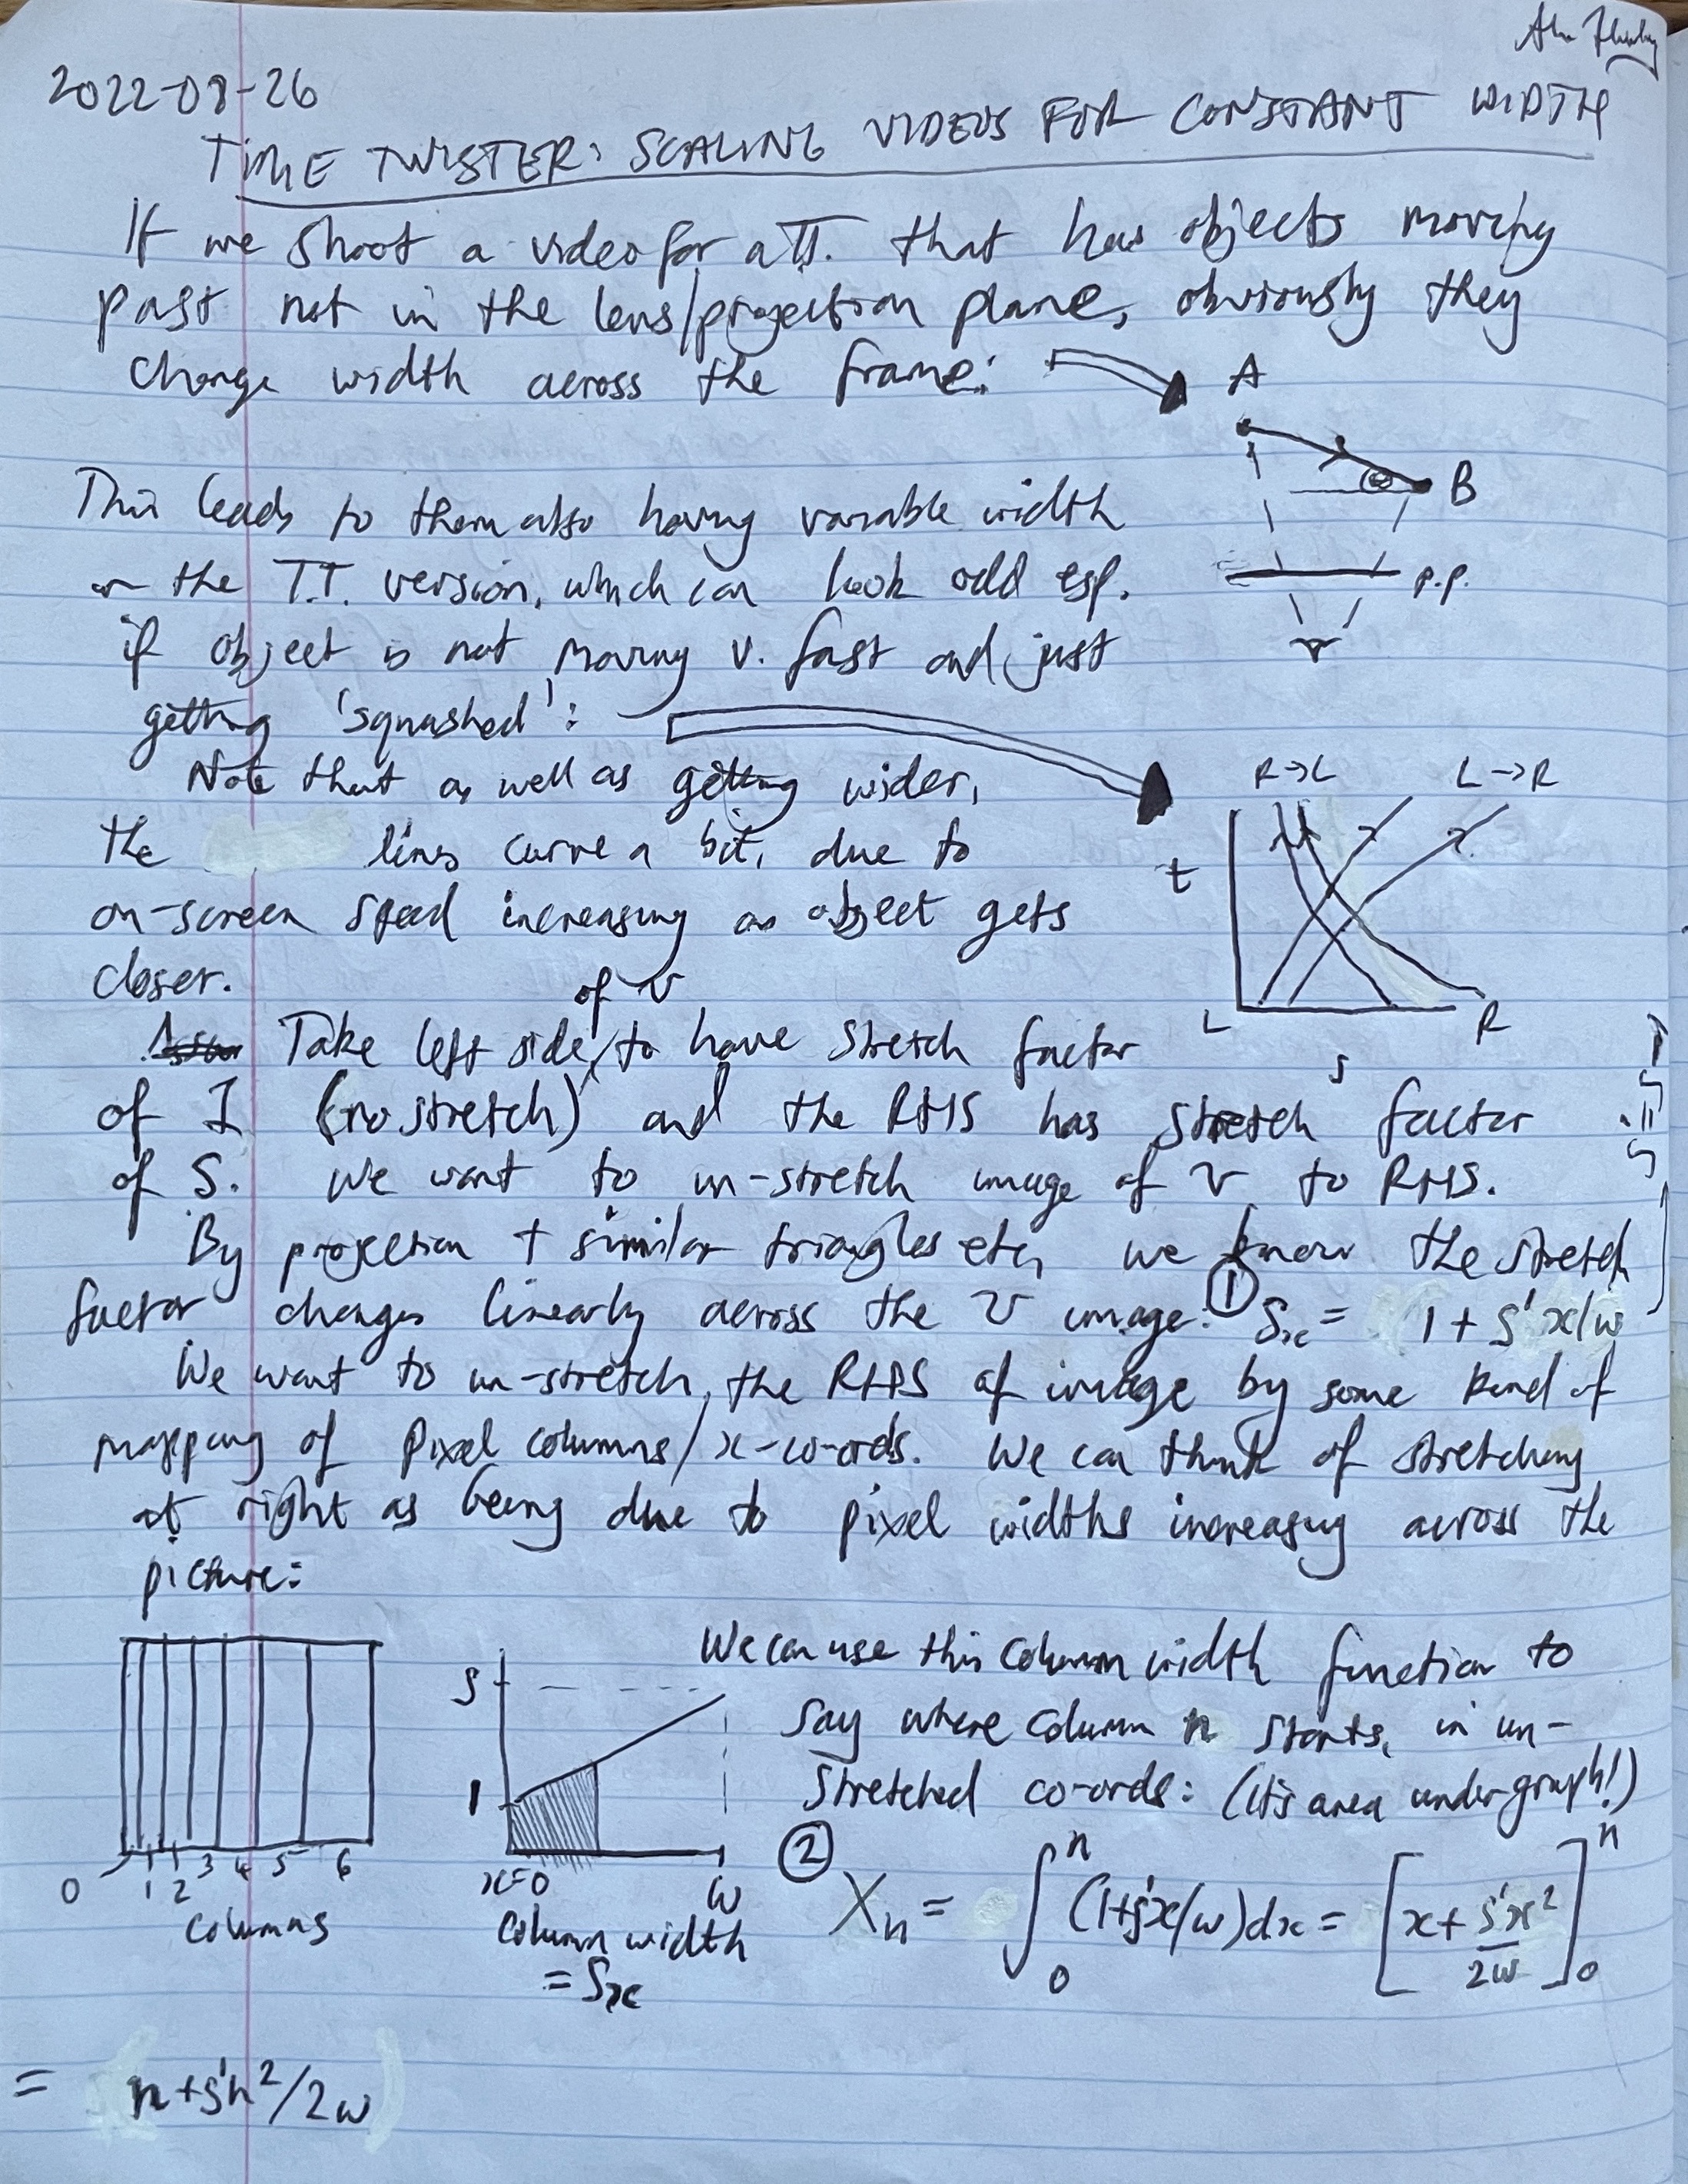 2022-08-26
TIME TWISTER: SCALING VIDEOS FOR CONSTANT WIDTH
If we shoot a video for a TT. that has objects moving
past not in the lens/projection plane, obviously they
change width across the frame:
A
B
p.p.
This leads to them also having variable width
in the T.T. version, which can look odd esp.
if object is not moving v. fast and just
getting 'squashed':
Note that as well as getting wider,
the lines curve a bit, due to
on-screen speed increasing as object gets
closer.
R→L L→R
t
L R
s
Take left side of v to have stretch factor
of 1 (no stretch) and the RHS has stretch factor
of S. We want to un-stretch image of v to RHS.
By projection + similar triangles etc, we know the stretch
factor changes linearly across the v image: ① Sx = 1 + s'x/w
We want to un-stretch the RHS of image by some kind of
mapping of pixel columns/x-co-ords. We can think of stretching
at right as being due to pixel widths increasing across the
picture:
0 1 2 3 4 5 6
columns
S
1
x=0 w
column width
= Sx
We can use this column width function to
say where column n starts, in un-
stretched co-ords: (it's area under graph!)
② Xn = ∫₀ⁿ (1+s'x/w)dx = [x + s'x²/2w]₀ⁿ
= n+s'n²/2w